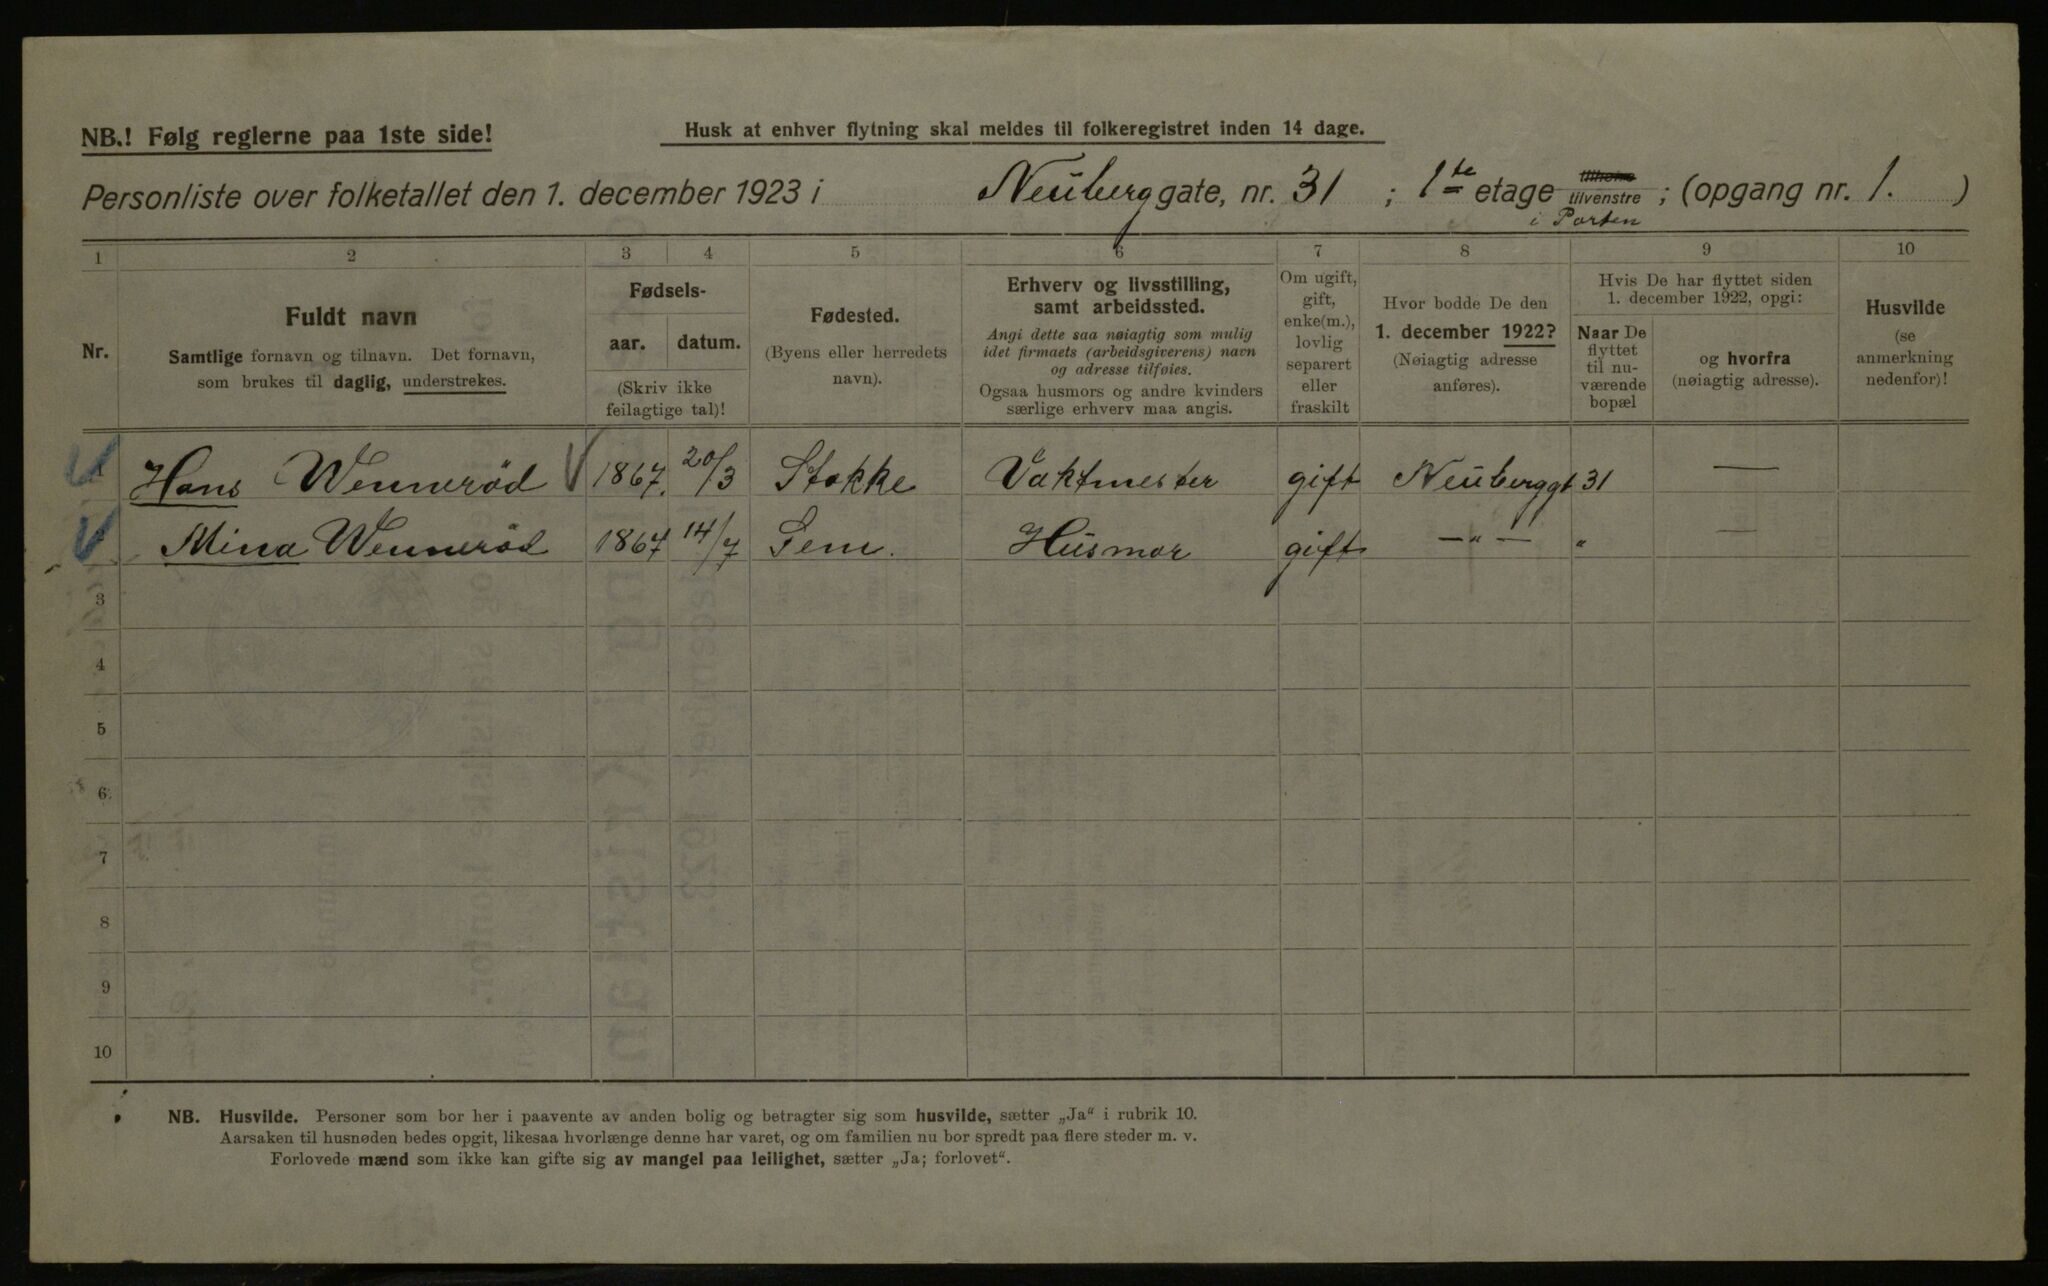 NB.! Følg reglerne paa 1ste side!
Husk at enhver flytning skal meldes til folkeregistret inden 14 dage.
Personliste over folketallet den 1. december 1923 i Neuberggate, nr. 31 ; 1ste etage tilhøire tilvenstre ; (opgang nr. 1. )
i Porten
1 2 3 4 5 6 7 8 9 10
Nr.
Fuldt navn
Samtlige fornavn og tilnavn. Det fornavn,
som brukes til daglig, understrekes.
Fødsels-
aar. datum.
(Skriv ikke
feilagtige tal)!
Fødested.
(Byens eller herredets
navn).
Erhverv og livsstilling,
samt arbeidssted.
Angi dette saa nøiagtig som mulig
idet firmaets (arbeidsgiverens) navn
og adresse tilføies.
Ogsaa husmors og andre kvinders
særlige erhverv maa angis.
Om ugift,
gift,
enke(m.),
lovlig
separert
eller
fraskilt
Hvor bodde De den
1. december 1922?
(Nøiagtig adresse
anføres).
Hvis De har flyttet siden
1. december 1922, opgi:
Naar De
flyttet
til nu-
værende
bopæl
og hvorfra
(nøiagtig adresse).
Husvilde
(se
anmerkning
nedenfor)!
1 Hans Wennerød 1867. 20/3 Stokke Vaktmester gift Neuberggt 31 —
Mina Wennerød 1867 14/7 Sem. Husmor gift —"— " —
3
4
5
6
7
8
9
10
NB. Husvilde. Personer som bor her i paavente av anden bolig og betragter sig som husvilde, sætter „Ja“ i rubrik 10.
Aarsaken til husnøden bedes opgit, likesaa hvorlænge denne har varet, og om familien nu bor spredt paa flere steder m. v.
Forlovede mænd som ikke kan gifte sig av mangel paa leilighet, sætter „Ja; forlovet“.